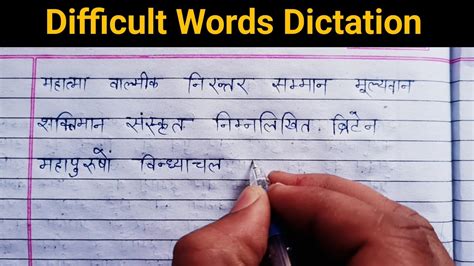 Difficult Words Dictation
महात्मा वाल्मीक निरन्तर सम्मान मूल्यवान
शक्तिमान संस्कृत निम्नलिखित ब्रिटेन
महापुरुषों बिन्ध्याचल